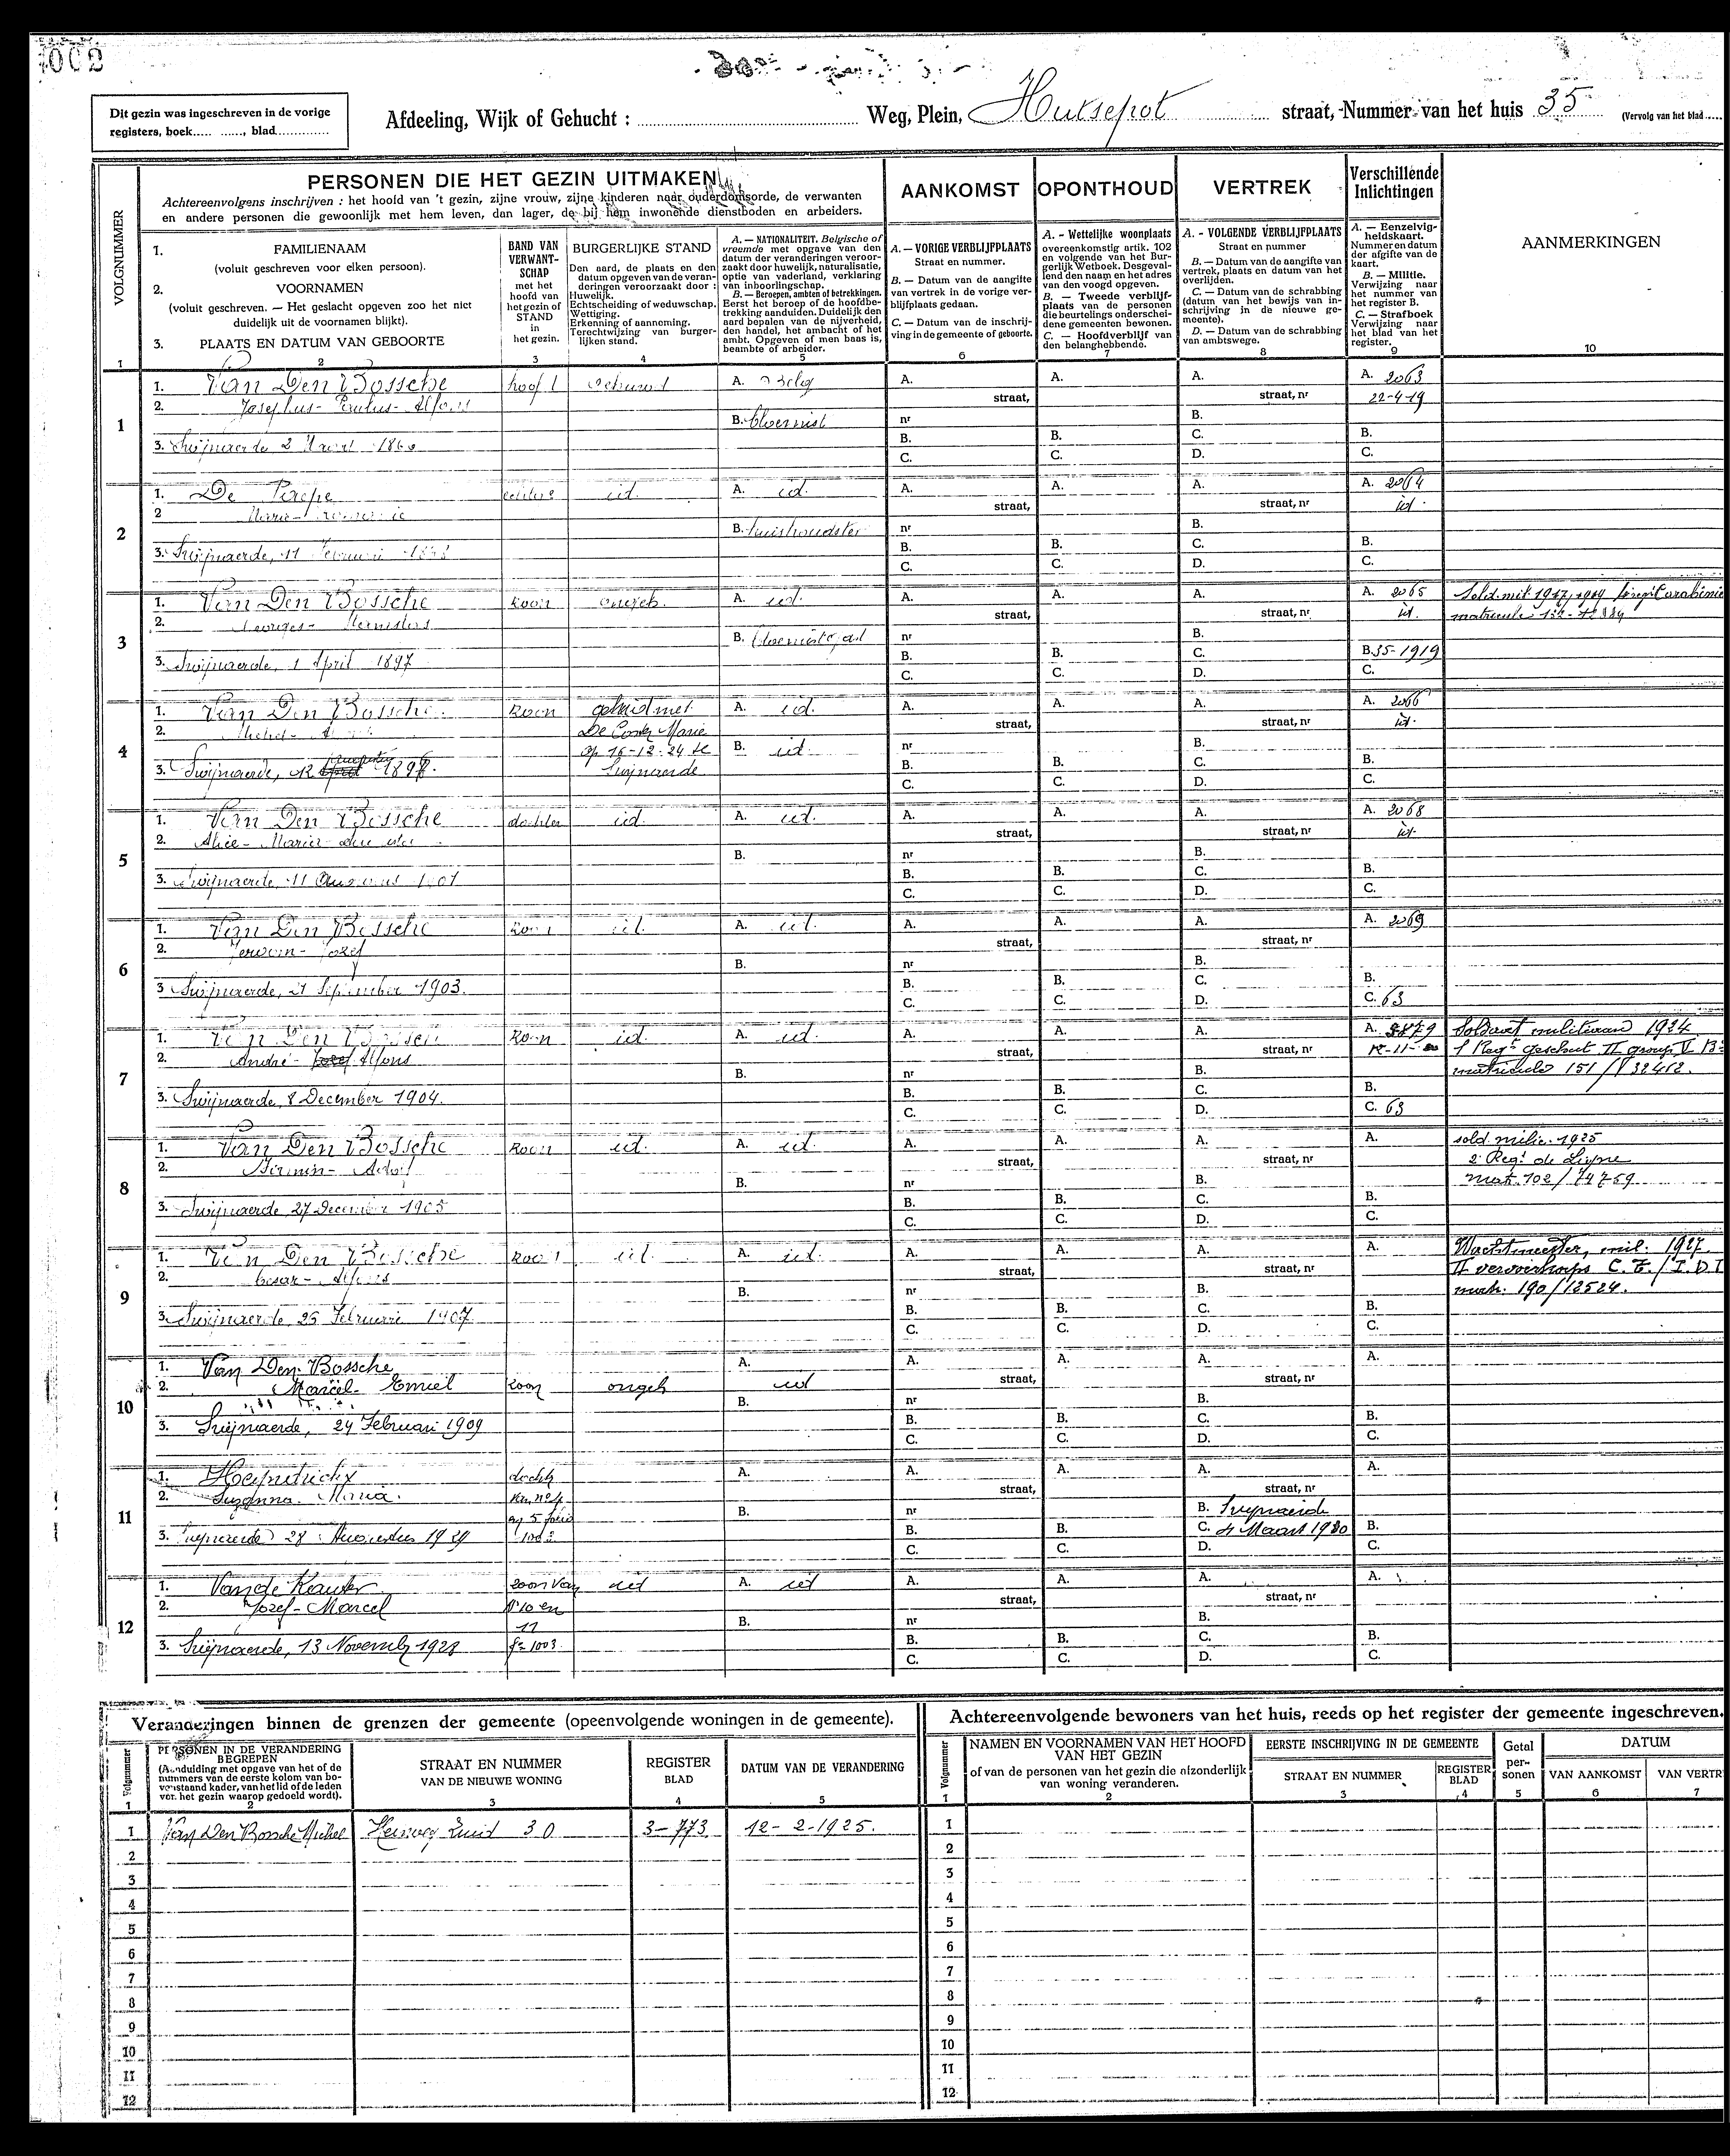 1002
Dit gezin was ingeschreven in de vorige
registers, boek..... ......, blad.............
Afdeeling, Wijk of Gehucht : Weg, Plein, Hutsepot straat, Nummer van het huis 35 (Vervolg van het blad
PERSONEN DIE HET GEZIN UITMAKEN
Achtereenvolgens inschrijven : het hoofd van 't gezin, zijne vrouw, zijne kinderen naar ouderdomsorde, de verwanten
en andere personen die gewoonlijk met hem leven, dan lager, de bij hem inwonende dienstboden en arbeiders.
AANKOMST
OPONTHOUD
VERTREK
Verschillende
Inlichtingen
AANMERKINGEN
VOLGNUMMER
1. FAMILIENAAM
(voluit geschreven voor elken persoon).
2. VOORNAMEN
(voluit geschreven. — Het geslacht opgeven zoo het niet
duidelijk uit de voornamen blijkt).
3. PLAATS EN DATUM VAN GEBOORTE
BAND VAN
VERWANT-
SCHAP
met het
hoofd van
het gezin of
STAND
in
het gezin.
BURGERLIJKE STAND
Den aard, de plaats en den
datum opgeven van de veran-
deringen veroorzaakt door :
Huwelijk.
Echtscheiding of weduwschap.
Wettiging.
Erkenning of aanneming.
Terechtwijzing van burger-
lijken stand.
A. — NATIONALITEIT. Belgische of
vreemde met opgave van den
datum der veranderingen veroor-
zaakt door huwelijk, naturalisatie,
optie van vaderland, verklaring
van inboorlingschap.
B. — Beroepen, ambten of betrekkingen.
Eerst het beroep of de hoofdbe-
trekking aanduiden. Duidelijk den
aard bepalen van de nijverheid,
den handel, het ambacht of het
ambt. Opgeven of men baas is,
beambte of arbeider.
A. — VORIGE VERBLIJFPLAATS
Straat en nummer.
B. — Datum van de aangifte
van vertrek in de vorige ver-
blijfplaats gedaan.
C. — Datum van de inschrij-
ving in de gemeente of geboorte.
A. - Wettelijke woonplaats
overeenkomstig artik. 102
en volgende van het Bur-
gerlijk Wetboek. Desgeval-
lend den naam en het adres
van den voogd opgeven.
B. — Tweede verblijf-
plaats van de personen
die beurtelings onderschei-
dene gemeenten bewonen.
C. — Hoofdverblijf van
den belanghebbende.
A. - VOLGENDE VERBLIJFPLAATS
Straat en nummer
B. — Datum van de aangifte van
vertrek, plaats en datum van het
overlijden.
C. — Datum van de schrabbing
(datum van het bewijs van in-
schrijving in de nieuwe ge-
meente).
D. — Datum van de schrabbing
van ambtswege.
A. — Eenzelvig-
heidskaart.
Nummer en datum
der afgifte van de
kaart.
B. — Militie.
Verwijzing naar
het nummer van
het register B.
C. — Strafboek
Verwijzing naar
het blad van het
register.
1 2 3 4 5 6 7 8 9 10
1. Van Den Bossche hoofd gehuwd A. Belg A. A. A. A. 2063
2. Josephus- Paulus- Alfons straat, straat, nr 22-4-19
1 B. bloemist nr B.
3. Swijnaerde 2 Maart 186 B. B. C. B.
C. C. D. C.
1. De Paepe id. A. id. A. A. A. A. 2064
2 Maria- straat, straat, nr id.
2 B. huishoudster nr B.
3. Swijnaerde, 11 Februari B. B. C. B.
C. C. D. C.
1. Van Den Bossche zoon ongeh. A. id. A. A. A. A. 2065 Sold. mil 1917/1919
2. Georges- straat, straat, nr id. matricule
3 B. nr B.
3. Swijnaerde, 1 April 1897 B. B. C. B. 35-1919
C. C. D. C.
1. Van Den Bossche zoon gehuwd met A. id. A. A. A. A. 2066
2. Michel- De Coster Marie straat, straat, nr id.
4 op 16-12-24 te B. id nr B.
3. Swijnaerde, 12 189 Swijnaerde B. B. C. B.
C. C. D. C.
1. Van Den Bossche dochter id. A. id. A. A. A. A. 2068
2. Alice- Maria- straat, straat, nr id.
5 B. nr B.
3. Swijnaerde, 11 Augustus 1901 B. B. C. B.
C. C. D. C.
1. Van Den Bossche zoon id. A. id. A. A. A. A. 2069
2. Jozef straat, straat, nr
6 B. nr B.
3 Swijnaerde, 21 September 1903. B. B. C. B.
C. C. D. C. 63
1. Van Den Bossche zoon id. A. id. A. A. A. A. Soldaat militiaan 1924
2. André- Jozef Alfons straat, straat, nr 1 Regt geschut II groep V
7 B. nr B. matricule 151/
3. Swijnaerde, 8 December 1904. B. B. C. B.
C. C. D. C. 63
1. Van Den Bossche zoon id. A. id. A. A. A. A. sold. milic. 1925
2. Firmin- Adolf straat, straat, nr 2 Regt de Ligne
8 B. nr B. mat. 102/74759
3. Swijnaerde, 27 December 1905 B. B. C. B.
C. C. D. C.
1. Van Den Bossche zoon id. A. id. A. A. A. A. Wachtmeester, mil. 1927.
2. Cesar- Alfons straat, straat, nr II vervoerkorps C. T. / I. D I
9 B. nr B. match. 190/12524.
3. Swijnaerde, 25 Februari 1907 B. B. C. B.
C. C. D. C.
1. Van Den Bossche A. A. A. A. A.
2. Marcel- Emiel zoon ongeh id straat, straat, nr
10 B. nr B.
3. Swijnaerde, 24 Februari 1909 B. B. C. B.
C. C. D. C.
1. Heyndrickx A. A. A. A. A.
2. Suzanna. Maria. straat, straat, nr
11 B. nr B. Swijnaerde
3. Swijnaerde 28 Augustus 1929 B. B. C. 4 Maart 1930 B.
C. C. D. C.
1. Van de Keuter zoon van id A. id A. A. A. A.
2. Jozef- Marcel N°10 en straat, straat, nr
12 11 B. nr B.
3. Swijnaerde, 13 November 1928 f° 1003. B. B. C. B.
C. C. D. C.
Veranderingen binnen de grenzen der gemeente (opeenvolgende woningen in de gemeente).
Volgnummer
PERSONEN IN DE VERANDERING
BEGREPEN
(Aanduiding met opgave van het of de
nummers van de eerste kolom van bo-
venstaand kader, van het lid of de leden
van het gezin waarop gedoeld wordt).
STRAAT EN NUMMER
VAN DE NIEUWE WONING
REGISTER
BLAD
DATUM VAN DE VERANDERING
1 2 3 4 5
1 Van Den Bossche Michel Heirweg Zuid 30 3-773 12-2-1925.
2
3
4
5
6
7
8
9
10
11
12
Achtereenvolgende bewoners van het huis, reeds op het register der gemeente ingeschreven.
Volgnummer
NAMEN EN VOORNAMEN VAN HET HOOFD
VAN HET GEZIN
of van de personen van het gezin die afzonderlijk
van woning veranderen.
EERSTE INSCHRIJVING IN DE GEMEENTE
STRAAT EN NUMMER
REGISTER
BLAD
Getal
per-
sonen
DATUM
VAN AANKOMST
VAN VERTR
1 2 3 4 5 6 7
1
2
3
4
5
6
7
8
9
10
11
12